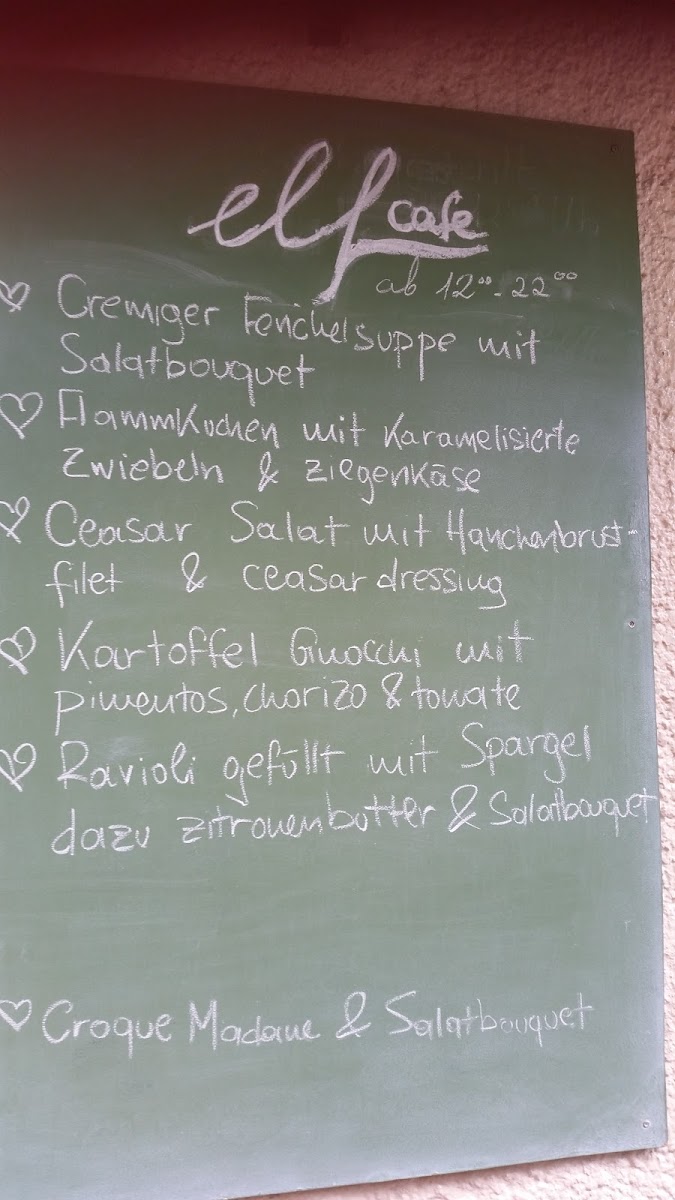 elf cafe
ab 12⁰⁰-22⁰⁰
Cremiger Fenchelsuppe mit
Salatbouquet
Flammkuchen mit Karamelisierte
Zwiebeln & Ziegenkäse
Ceasar Salat mit Hänchenbrust-
filet & ceasar dressing
Kartoffel Gnocchi mit
pimentos, chorizo & tomate
Ravioli gefüllt mit Spargel
dazu zitronenbutter & Salatbouquet
Croque Madame & Salatbouquet